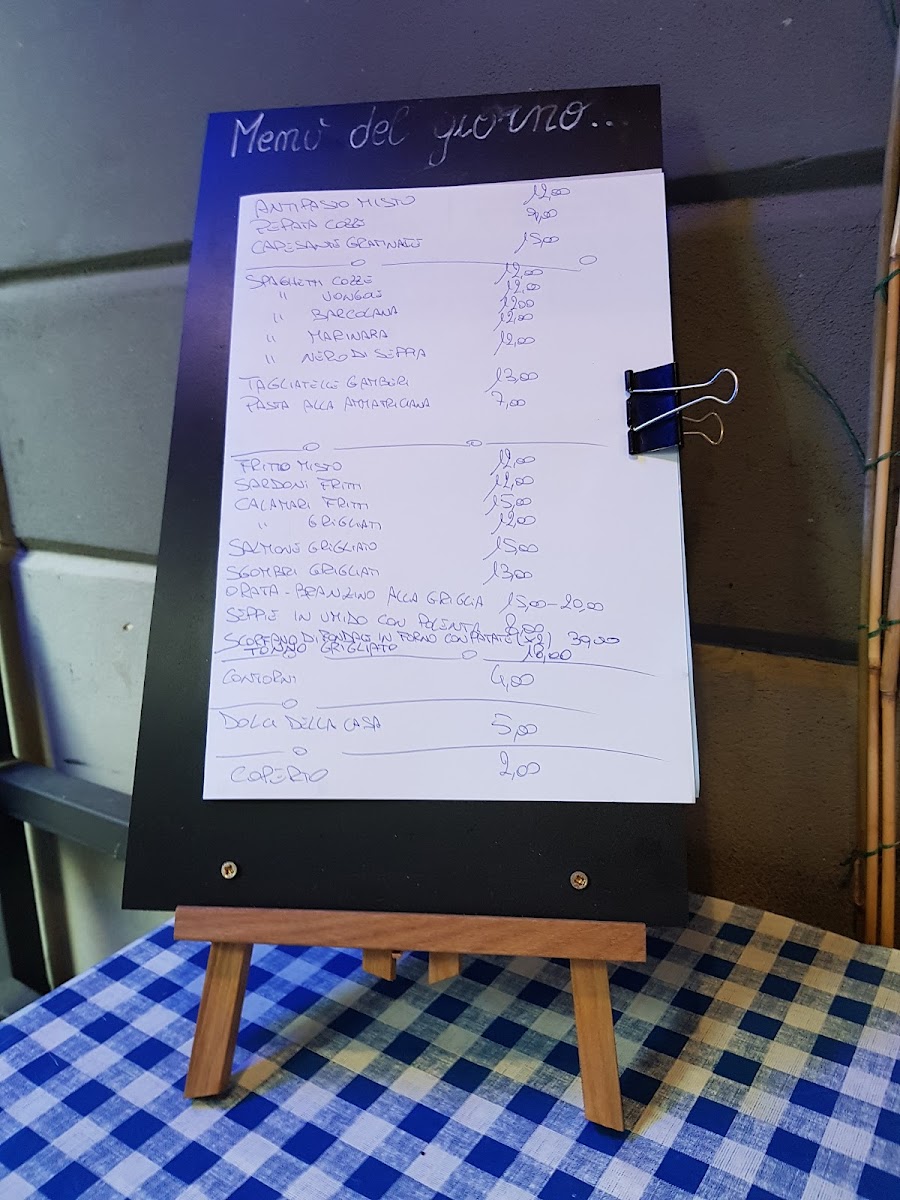 Menù del giorno...
ANTIPASTO MISTO 12,00
PEPATA COZZE 9,00
CAPESANTE GRATINATE 15,00
SPAGHETTI COZZE 12,00
" VONGOLE 12,00
" BARCOLANA 12,00
" MARINARA 12,00
" NERO DI SEPPIA 12,00
TAGLIATELLE GAMBERI 13,00
PASTA ALLA AMMATRICIANA 7,00
FRITTO MISTO 12,00
SARDONI FRITTI 12,00
CALAMARI FRITTI 15,00
" GRIGLIATI 12,00
SALMONE GRIGLIATO 15,00
SGOMBRI GRIGLIATI 13,00
ORATA - BRANZINO ALLA GRIGLIA 15,00-20,00
SEPPIE IN UMIDO CON POLENTA 8,00
SCORFANO DI FONDALE IN FORNO CON PATATE (x2) 39,00
TONNO GRIGLIATO 18,00
CONTORNI 4,00
DOLCI DELLA CASA 5,00
COPERTO 2,00